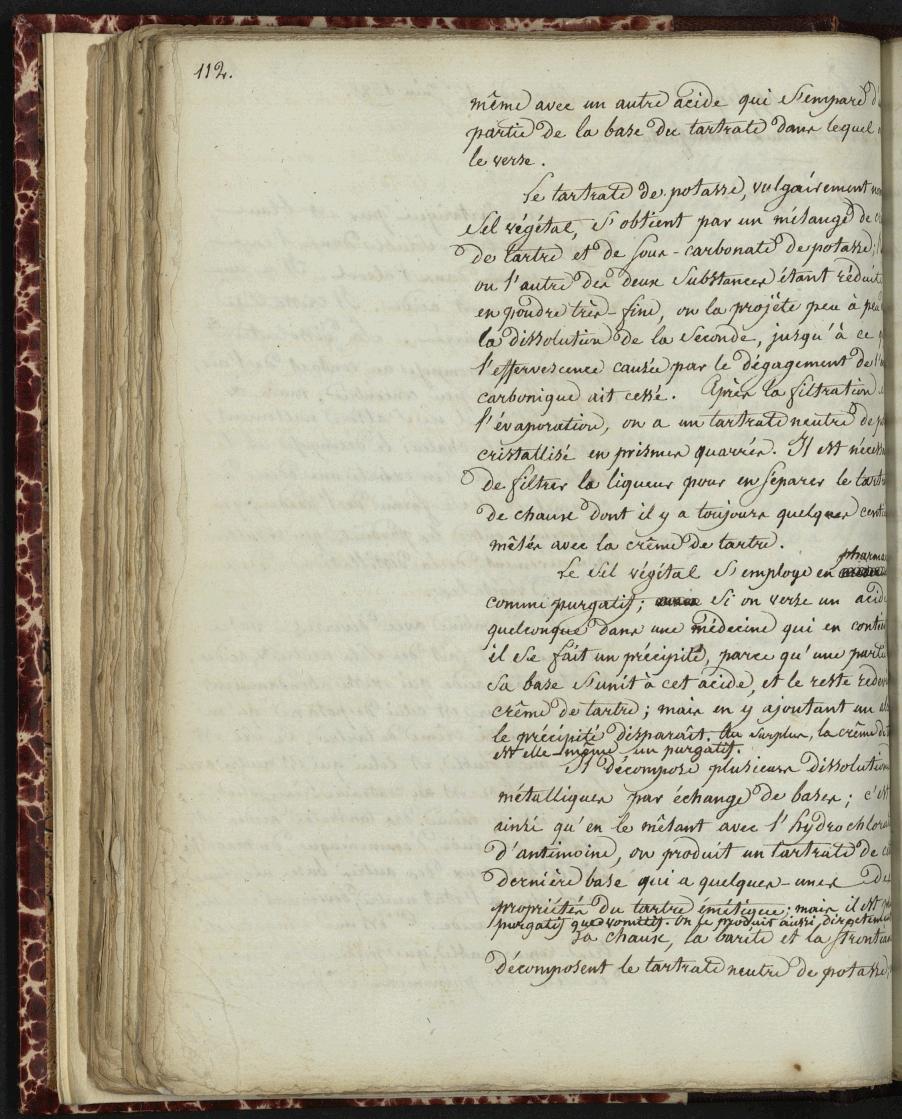 112.
même avec un autre acide qui s'empare
partie de la base du tartrate dans lequel
le verse.
Le tartrate de potasse, vulgairement
Sel végétal, s'obtient par un mélange de
de tartre et de sous-carbonate de potasse;
ou l'autre des deux substances étant réduite
en poudre très-fine, on la projète peu à peu
la dissolution de la seconde, jusqu'à ce
l'effervescence causée par le dégagement de
carbonique ait cessé. Après la filtration
l'évaporation, on a un tartrate neutre de
cristallisé en prismes quarrés. Il est
de filtrer la liqueur pour en séparer le
de chaux dont il y a toujours quelques
mêlés avec la crême de tartre.
Le sel végétal s'employe en
comme purgatif; si on verse un acide
quelconque dans une médecine qui en
il se fait un précipité, parce qu'une partie
sa base s'unit à cet acide, et le reste
crême de tartre; mais en y ajoutant un
le précipité disparaît. Au surplus, la crême
est elle-même un purgatif.
Il décompose plusieurs dissolutions
métalliques par échange de bases; c'est
ainsi qu'en le mêlant avec l'hydrochlorate
d'antimoine, on produit un tartrate de
dernière base qui a quelques-unes des
propriétés du tartre émétique; mais il est
purgatif que vomitif. On le produit aussi directement
La chaux, la barite et la
décomposent le tartrate neutre de potasse